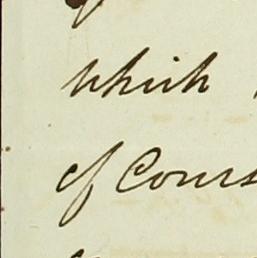 which
of Cours